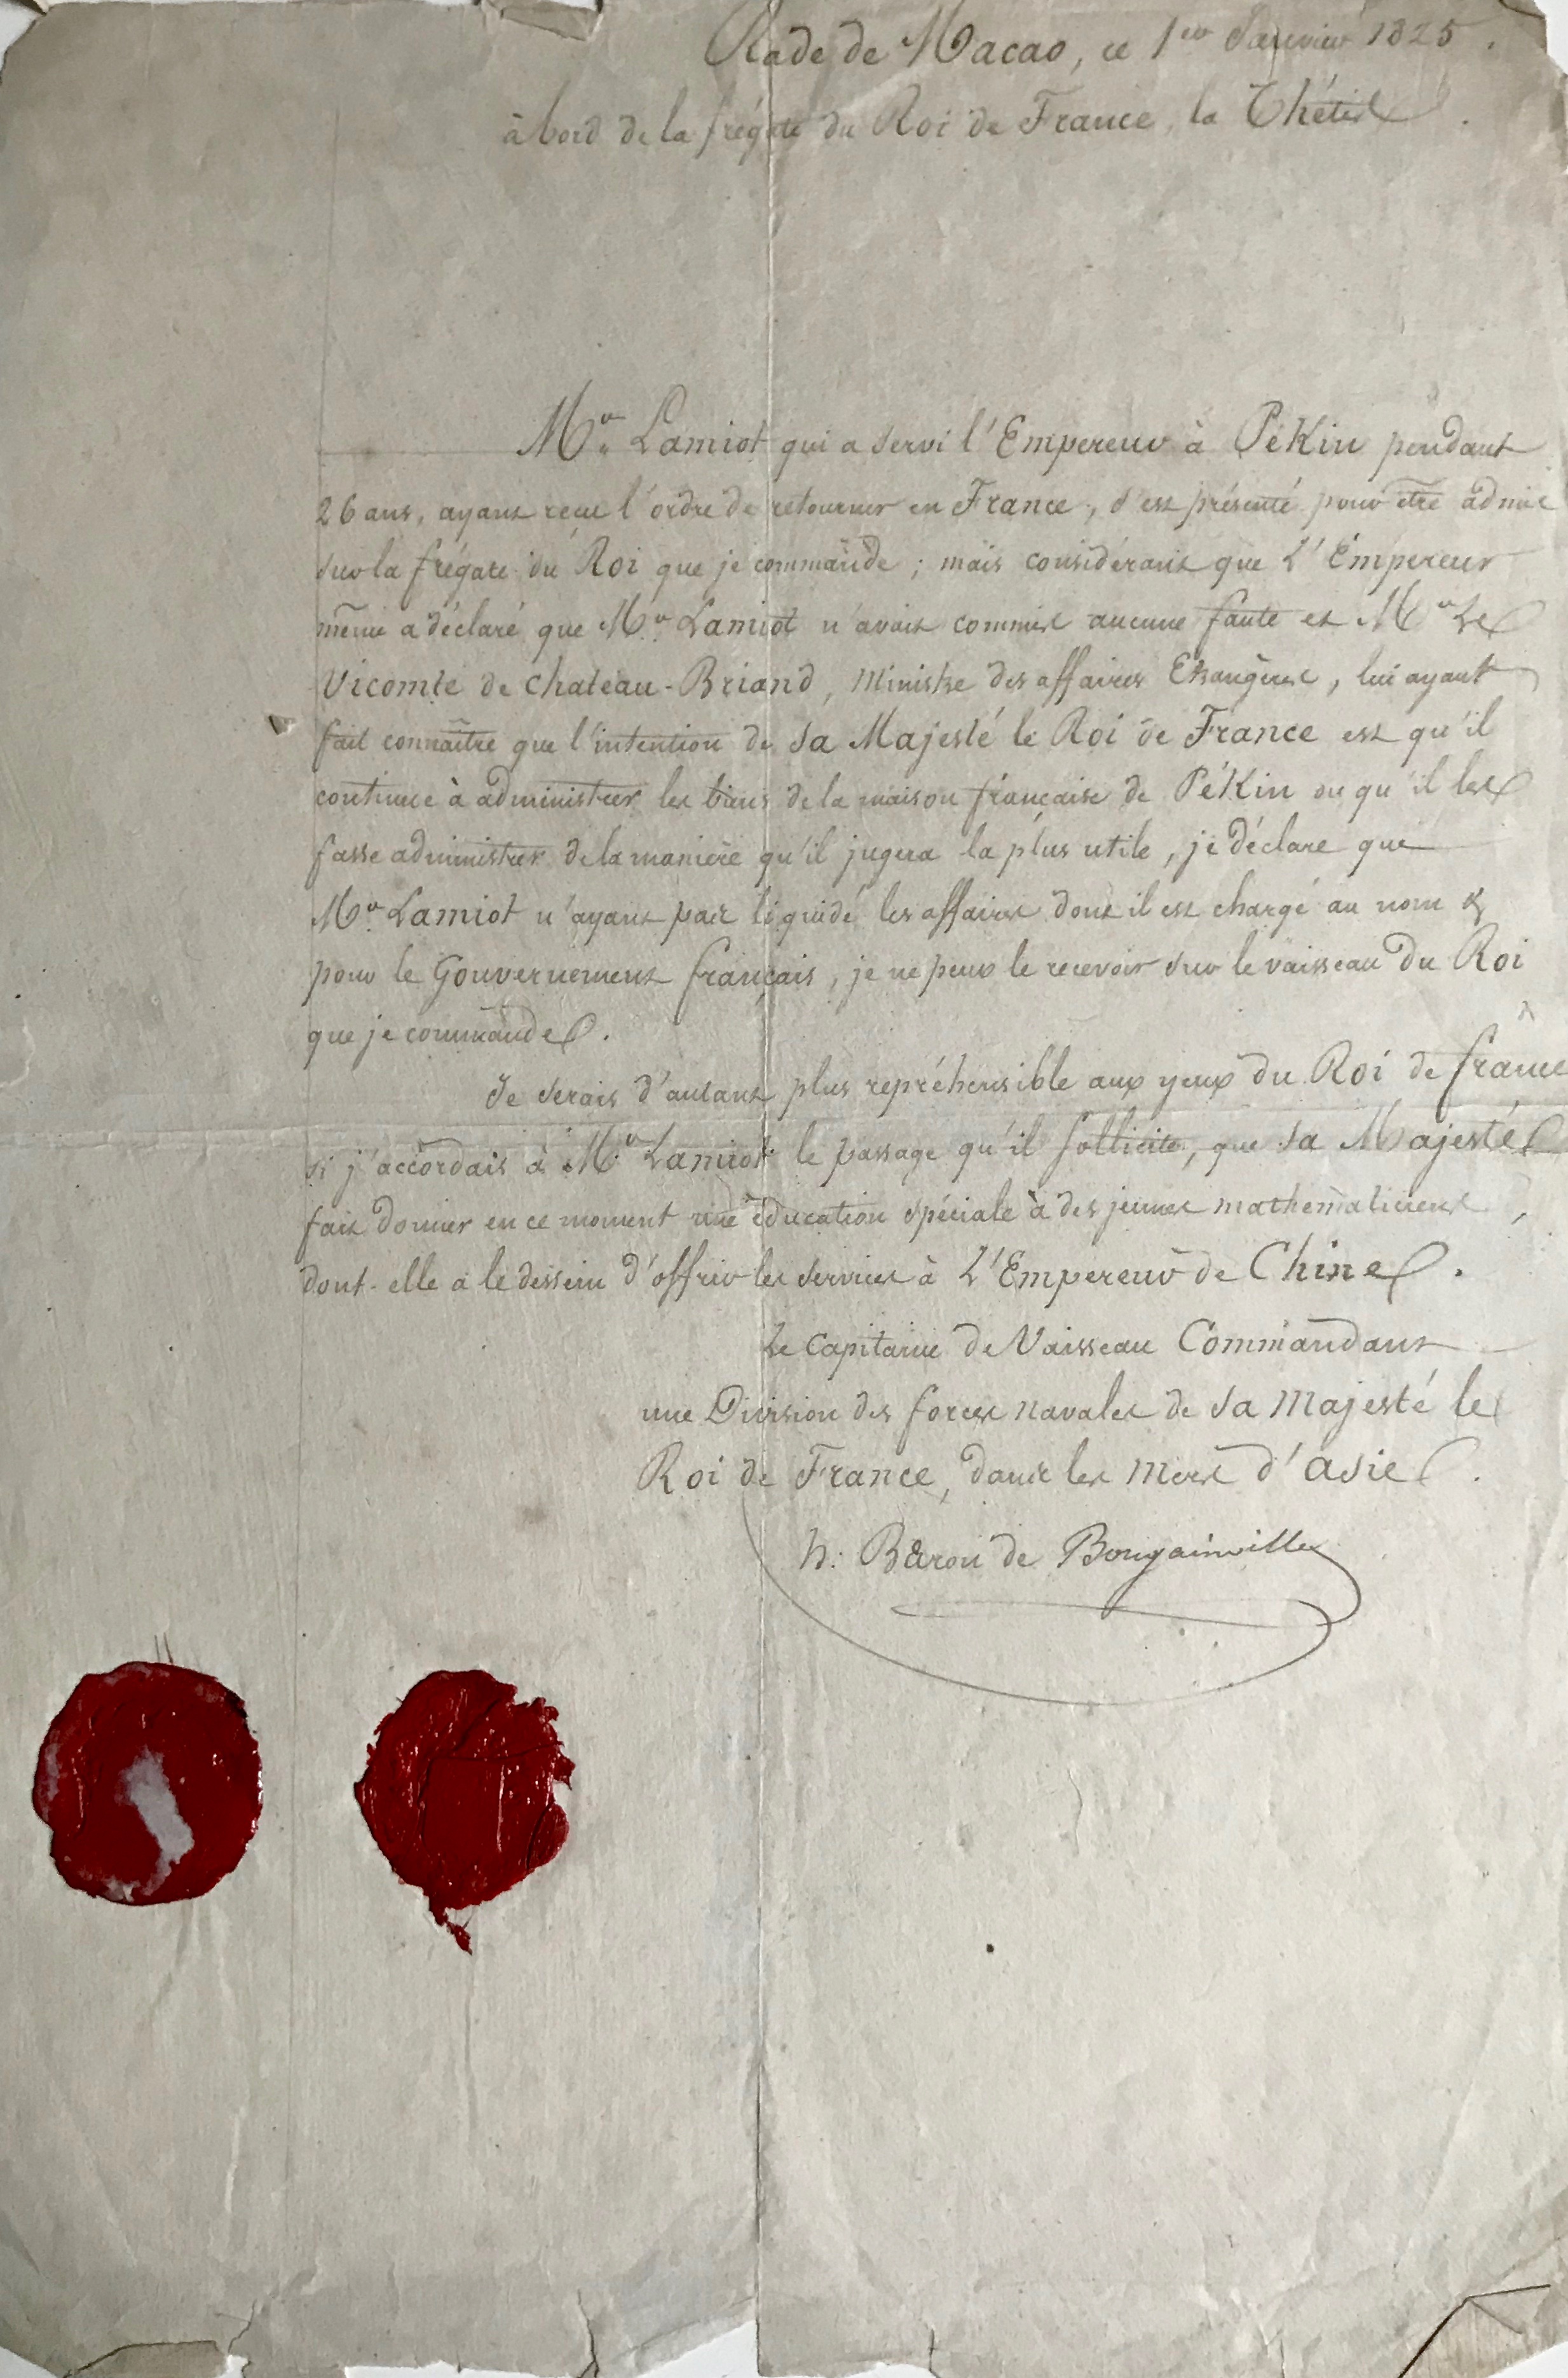 Rade de Macao, ce 1er Janvier 1825.
à bord de la frégate du Roi de France, la Thétis.
Mr. Lamiot qui a servi l'Empereur à PéKin pendant
26 ans, ayant reçu l'ordre de retourner en France, s'est présenté pour être admis
sur la frégate du Roi que je commande; mais considérant que L'Empereur
même a déclaré que Mr. Lamiot n'avait commis aucune faute et Mr Le
Vicomte de Chateau-Briand, Ministre des affaires Etrangères, lui ayant
fait connaître que l'intention de Sa Majesté le Roi de France est qu'il
continue à administrer les biens de la maison française de PéKin ou qu'il les
fasse administrer de la manière qu'il jugera la plus utile, je déclare que
Mr. Lamiot n'ayant pas liquidé les affaires dont il est chargé au nom &
pour le Gouvernement français, je ne peux le recevoir sur le vaisseau du Roi
que je commande.
Je serais d'autant plus repréhensible aux yeux du Roi de france
si j'accordais à Mr. Lamiot le passage qu'il sollicite, que Sa Majesté
fait donner en ce moment une éducation spéciale à des jeunes mathématiciens,
dont-elle a le dessein d'offrir les services à L'Empereur de Chine.
Le Capitaine de Vaisseau Commandant
une Division des forces navales de Sa Majesté le
Roi de France, dans les Mers d'asie.
h: Baron de Bougainville